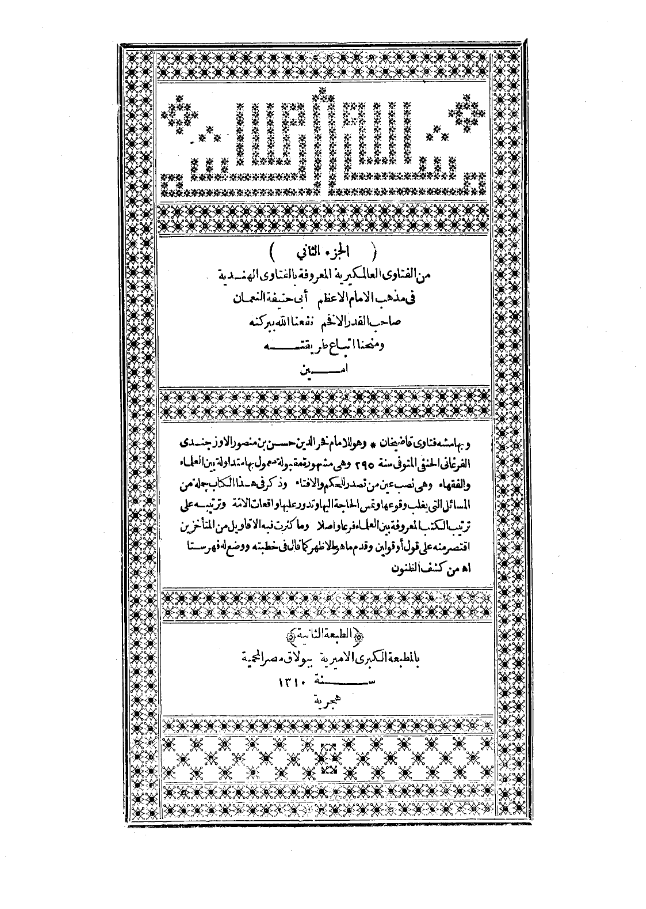 بسم الله الرحمن الرحيم
( الجزء الثاني )
من الفتاوى العالمكيرية المعروفة بالفتاوى الهندية
فى مذهب الامام الاعظم أبى حنيفة النعمان
صاحب القدر الافخم نفعنا الله ببركته
ومنحنا اتباع طريقتــه
امــين
وبهامشه فتاوى قاضيخان * وهو للامام فخر الدين حسن بن منصور الاوزجندى
الفرغانى الحنفى المتوفى سنة ٢٩٥ وهى مشهورة مقبولة معمول بها متداولة بين العلماء
والفقهاء وهى نصب عين من تصدر للحكم والافتاء وذكر فى هذا الكتاب جملة من
المسائل التى يغلب وقوعها وتمس الحاجة اليها وتدور عليها واقعات الامة وترتيبه على
ترتيب الكتب المعروفة بين العلماء فرعا واصلا وما كثرت فيه الاقاويل من المتأخرين
اقتصر منه على قول أو قولين وقدم ما هو الاظهر كما قال فى خطبته ووضع له فهرستا
اه من كشف الظنون
﴿الطبعة الثانية﴾
بالمطبعة الكبرى الاميرية ببولاق مصر المحمية
ســنة ١٣١٠
هجرية